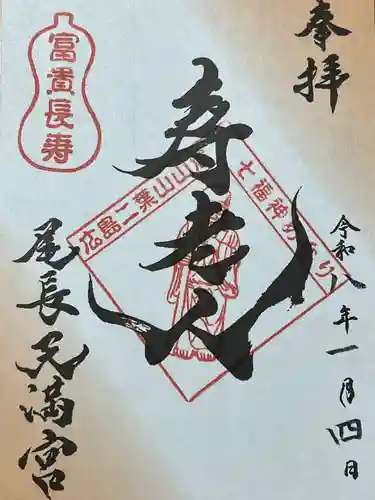 奉拝
令和八年一月四日
寿老人
富貴長寿
広島二葉山山
七福神めぐり
尾長天満宮